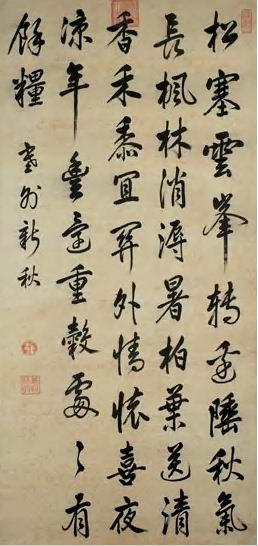 松塞雲峯轉邊陲秋氣
長楓林消溽暑柏葉送清
香禾黍宜關外情懷喜夜
涼年豐重穀處〻有
餘糧
塞外新秋